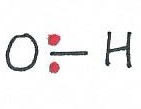 O:— H